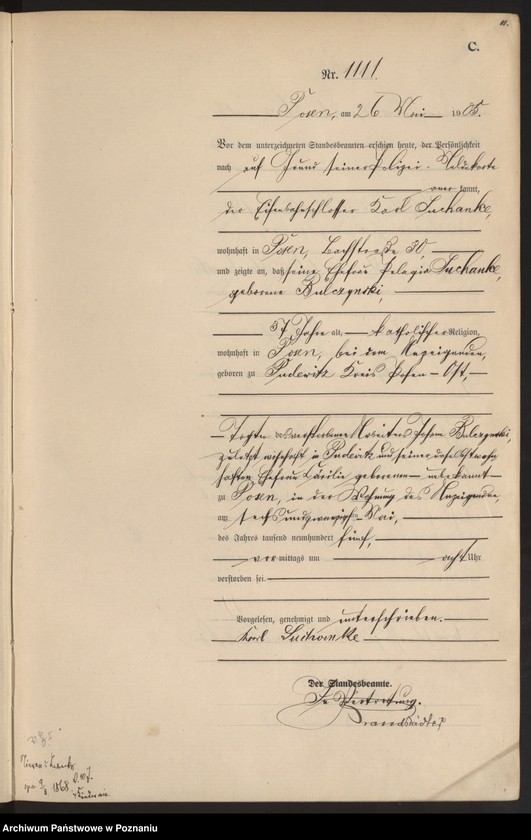 C.
Nr. 1111.
Posen, am 26 Mai 1905.
Vor dem unterzeichneten Standesbeamten erschien heute, der Persönlichkeit
nach auf Grund seiner Polizei-Meldekarte
kannt,
der Eisenbahnschlosser Karl Suchanke,
wohnhaft in Posen, Bachstraße 30,
und zeigte an, daß seine Ehefrau Pelagia Suchanke,
geborene Bulczynski,
37 Jahre alt, katholischer Religion,
wohnhaft in Posen, bei dem Anzeigenden,
geboren zu Pudewitz Kreis Posen-Ost,
Tochter des verstorbenen Arbeiters Bulczynski,
zuletzt wohnhaft in Pudewitz und seiner
Ehefrau geborenen unbekannt
zu Posen, in der Wohnung des Anzeigenden
am sechsundzwanzigsten Mai,
des Jahres tausend neunhundert fünf,
vormittags um acht Uhr
verstorben sei.
Vorgelesen, genehmigt und unterschrieben.
Karl Suchanke
Der Standesbeamte.
In Vertretung.
Brandstädter
1868
Archiwum Państwowe w Poznaniu